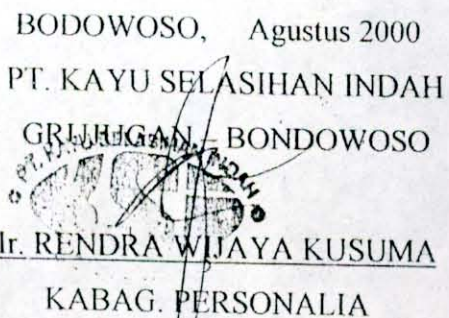 BODOWOSO, Agustus 2000
PT. KAYU SELASIHAN INDAH
GRUJUGAN – BONDOWOSO
Ir. RENDRA WIJAYA KUSUMA
KABAG. PERSONALIA